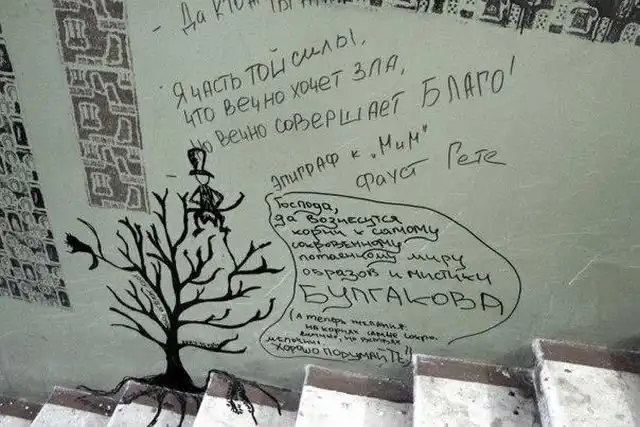 - Да кто ты
- Я часть той силы,
что вечно хочет зла,
но вечно совершает БЛАГО!
эпиграф к „МиМ"
Фауст Гете
Господа,
да вознесутся
корни к самому
сокровенному
потаенному миру
образов и мистики
БУЛГАКОВА
(А теперь желания,
на корнях самые сокро
венные, на ветках
мелочные.
Хорошо подумайТЕ!)